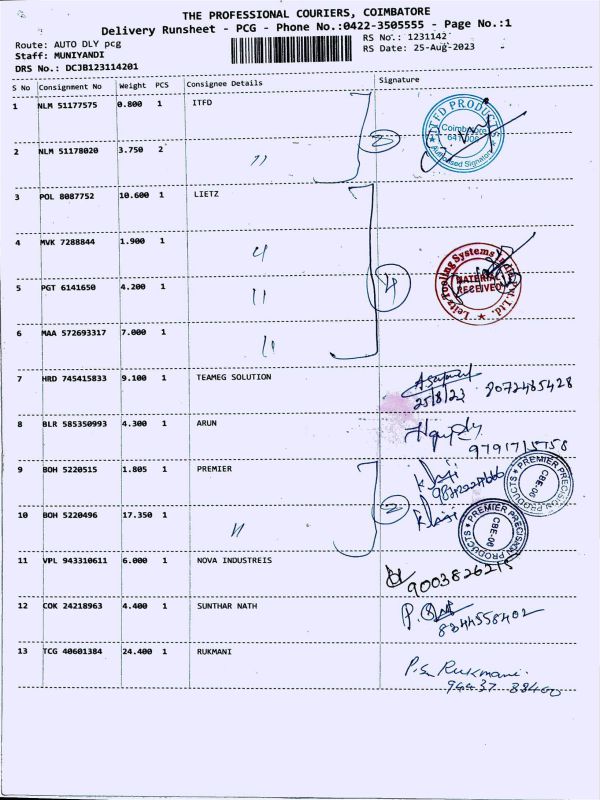 THE PROFESSIONAL COURIERS, COIMBATORE
Delivery Runsheet - PCG - Phone No.:0422-3505555 - Page No.:1
Route: AUTO DLY pcg
RS No.: 1231142
Staff: MUNIYANDI
RS Date: 25-Aug-2023
DRS No.: DCJB123114201
S No Consignment No Weight PCS Consignee Details Signature
1 NLM 51177575 0.800 1 ITFD
ITFD PRODUCTS
Coimbatore
Authorised Signatory
2 NLM 51178020 3.750 2 "
3 POL 8087752 10.600 1 LIETZ
4 MVK 7288844 1.900 1 "
Leitz Tooling Systems India Pvt. Ltd.
MATERIAL
RECEIVED
4
5 PGT 6141650 4.200 1 "
6 MAA 572693317 7.000 1 "
7 HRD 745415833 9.100 1 TEAMEG SOLUTION
25/8/23 8072485428
8 BLR 585350993 4.300 1 ARUN
9791715758
9 BOH 5220515 1.805 1 PREMIER
PREMIER PRECISION PRODUCTS
CBE-06
2
10 BOH 5220496 17.350 1 "
PREMIER PRECISION PRODUCTS
CBE-06
11 VPL 943310611 6.000 1 NOVA INDUSTREIS
12 COK 24218963 4.400 1 SUNTHAR NATH
8344558402
13 TCG 40601384 24.400 1 RUKMANI
P.S. Rukmani